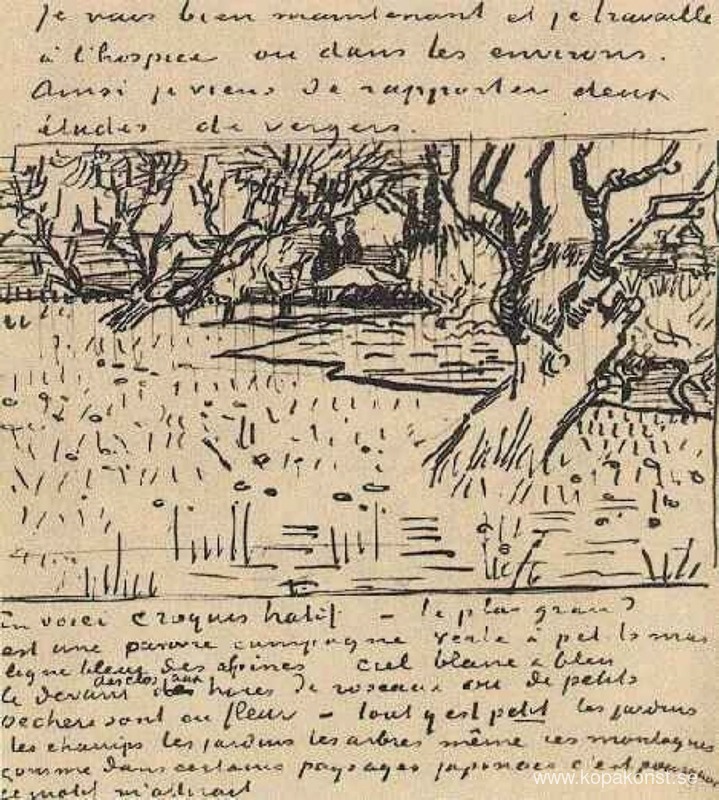 Je vais bien maintenant et je travaille
à l'hospice ou dans les environs.
Ainsi je viens de rapporter deux
études de vergers.
En voici croquis hatif – le plus grand
est une pauvre campagne verte à petits mas
ligne bleue des alpines ciel blanc & bleu
le devant des clos aux haies de roseaux où de petits
pechers sont en fleur – tout y est petit les jardins
les champs les jardins les arbres même ces montagnes
comme dans certains paysages japonais c'est pourquoi
ce motif m'attirait
www.kopakonst.se